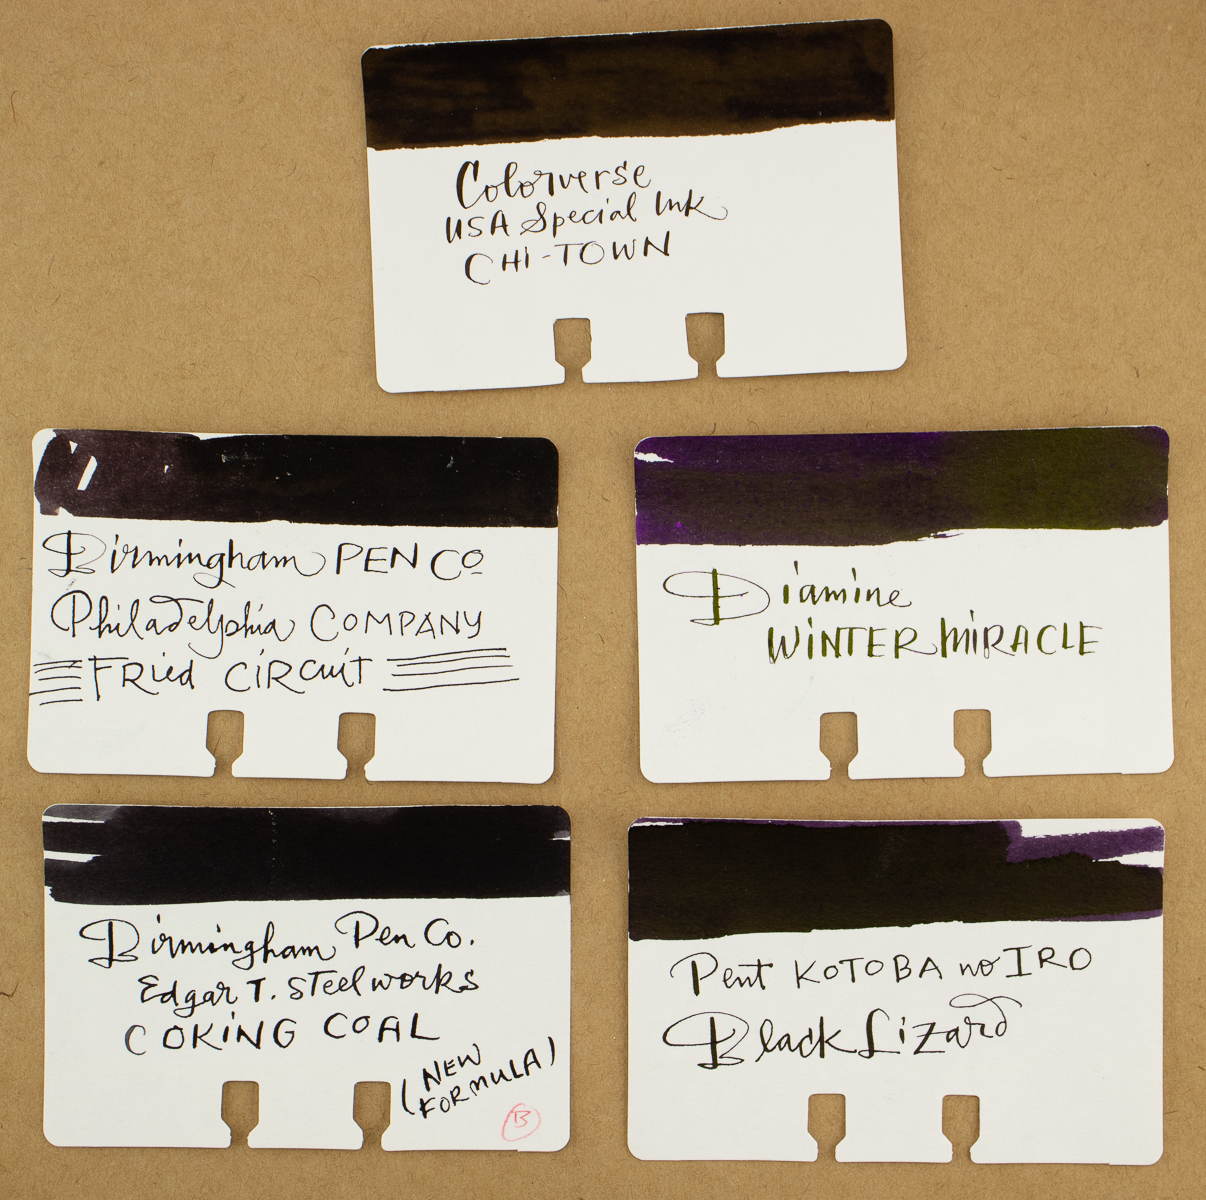 Colorverse
USA Special Ink
CHI-TOWN
Birmingham PEN Co
Philadelphia COMPANY
FRied CiRCuiT
Diamine
WiNTER MiRACLE
Birmingham Pen Co.
Edgar T. STeelworks
COKiNG COAL
(NEW
FORMULA)
B
Pent KOTOBA no IRO
Black Lizard